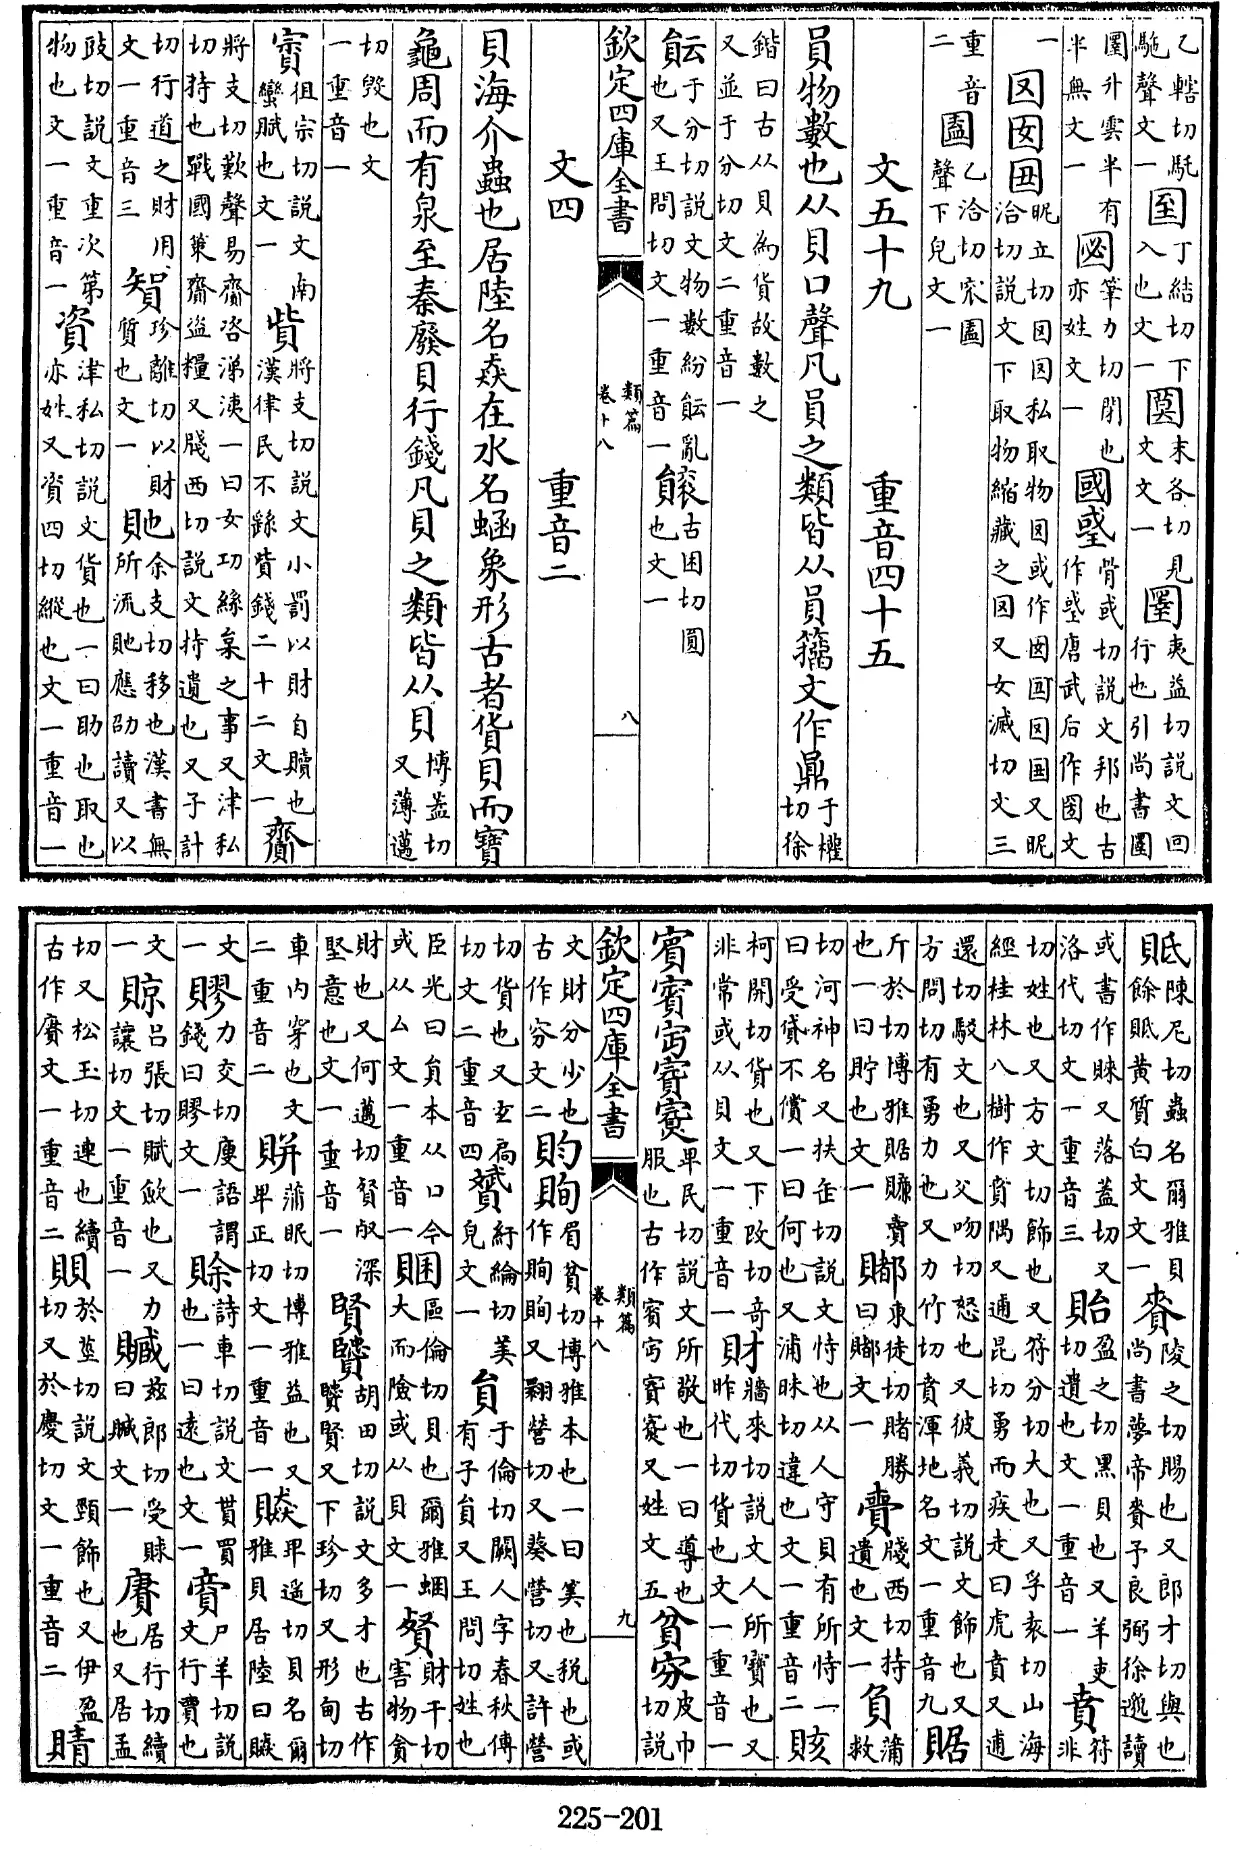 乙轄切駞駞聲文一 𡇻丁結切下入也文一 𡈗末各切見文文一 圛夷益切說文回行也引尚書圛
圛升雲半有半無文一 𡇒筆力切閉也亦姓文一 國𢧌骨或切說文邦也古作𢧌唐武后作圀文
一
重音二 文一
文五十九 重音四十五
員物數也从貝口聲凡員之類皆从員籀文作鼎于權切徐
鍇曰古从貝為貨故數之又並于分切文二重音一
䫟于分切說文物數紛䫟亂也又王問切文一重音一 古困切圓也文一
欽定四庫全書 類篇 卷十八 八
文四 重音二
貝海介蟲也居陸名猋在水名蜬象形古者貨貝而寶
龜周而有泉至秦廢貝行錢凡貝之類皆从貝博蓋切又薄邁
切毀也文一重音一
賨徂宗切說文南蠻賦也文一 貲將支切說文小罰以財自贖也漢律民不繇貲錢二十二文一 齎
將支切歎聲易齎咨涕洟一曰女功絲枲之事又津私切持也戰國䇿齎盜糧又牋西切說文持遺也又子計
切行道之財用文一重音三 𧶼珍離切以財質也文一 貤余支切移也漢書無所流貤應劭讀又以
豉切說文重次第物也文一重音一 資津私切說文貨也一曰助也取也亦姓又資四切縱也文一重音一
貾陳尼切蟲名爾雅貝餘貾黃質白文文一 賚陵之切賜也又郎才切與也尚書夢帝賚予良弼徐邈讀
或書作睞又落蓋切又洛代切文一重音三 貽盈之切黑貝也又羊吏切遺也文一重音一 賁符非
切姓也又方文切飾也又符分切大也又孚袁切山海經桂林八樹作賁隅又逋昆切勇而疾走曰虎賁又逋
還切駁文也又父吻切怒也又彼義切說文飾也又方問切有勇力也又力竹切賁渾地名文一重音九 賘
斤於切博雅賘賺賣也一曰貯也文一 賭東徒切賭勝曰賭文一 賷牋西切持遺也文一 負蒲救
切河神名又扶缶切說文恃也从人守貝有所恃一曰受貸不償一曰何也又浦昧切違也文一重音二 賅
柯開切貨也又下改切奇非常或从貝文一重音一 財牆來切說文人所寶也又昨代切貨也文一重音一
賔賓𡧍𡧼𡪛卑民切說文所敬也一曰導也服也古作賓𡧍𡧼𡪛又姓文五 貧𡧋皮巾切說
欽定四庫全書 類篇 卷十八 九
文財分少也古作𡧋文二 䝧䝭眉貧切博雅本也一曰筭也稅也或作䝭䝭又翾營切又葵營切又許營
切貨也又玄扃切文二重音四 贇紆綸切美皃文一 貟于倫切闕人字春秋傳有子貟又王問切姓也
臣光曰貟本从口今或从厶文一重音一 䝐區倫切貝也爾雅蜠大而險或从貝文一 䝳財干切害物貪
財也又何邁切䝳㕡深堅意也文一重音一 賢贒胡田切說文多才也古作贒賢又下珍切又形甸切
車內穿也文二重音二 賆蒲眠切博雅益也又卑正切文一重音一 贆卑遙切貝名爾雅貝居陸曰贆
文一 賿力交切廋語謂錢曰賿文一 賒詩車切說文貰買也一曰遠也文一 𧶜尸羊切說文行賈也
文一 䝶呂張切賦斂也又力讓切文一重音一 贓茲郎切受賕曰贓文一 賡居行切續也又居孟
切又松玉切連也續古作賡文一重音二 賏於莖切說文頸飾也又伊盈切又於慶切文一重音二 䝼
225-201